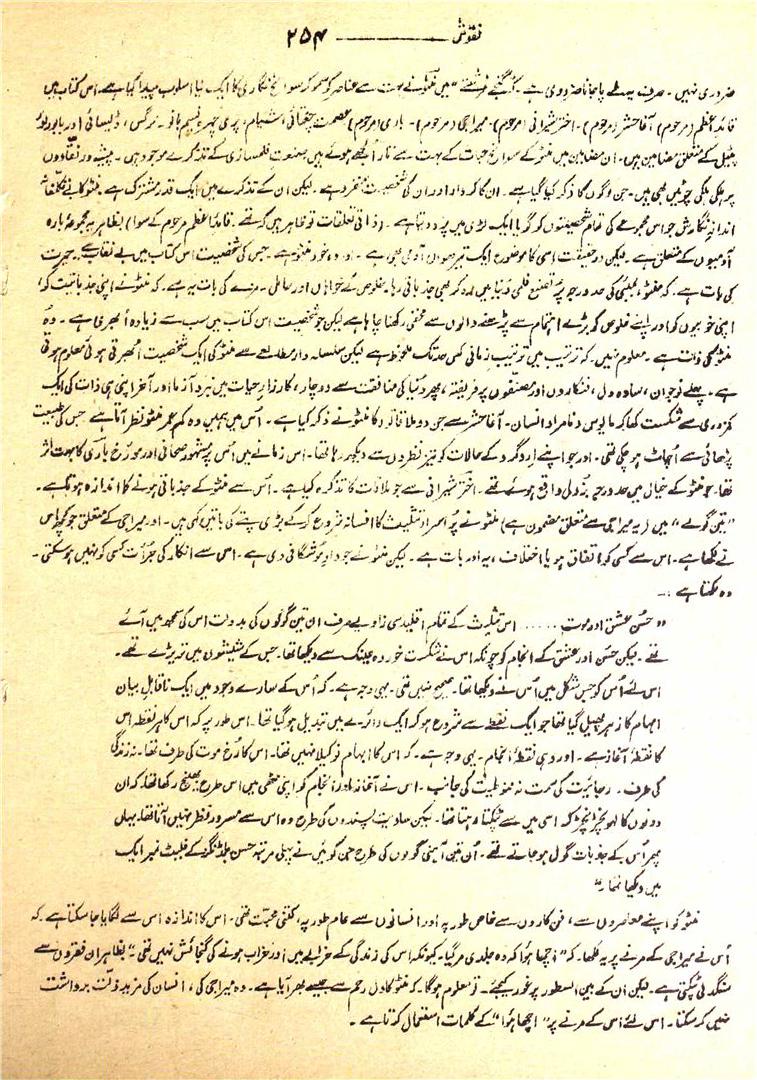 نقوش ــــــــــ ۲۵۴
ضروری نہیں ۔ صرف پہلے پایا جانا ضروری ہے ۔ "گنجے فرشتے" میں منٹو نے بہت سے عناصر کو سمو کر سوانح نگاری کا ایک نیا اسلوب پیدا کیا ہے۔ اس کتاب میں
قائد اعظم (مرحوم) آغا حشر (مرحوم) ۔ اختر شیرانی (مرحوم) ۔ میراجی (مرحوم) ۔ باری (مرحوم) عصمت چغتائی، شیام، پری چہرہ نسیم بانو ۔ نرگس، ڈیسائی اور بابو راؤ
پٹیل کے متعلق مضامین ہیں۔ ان مضامین میں منٹو کے سوانح حیات کے بہت سے تار اُلجھے ہوئے ہیں صنعت فلمسازی کے تذکرے موجود ہیں ۔ پیشہ ور نقادوں
پر ہلکی ہلکی چوٹیں بھی ہیں۔ جن لوگوں کا ذکر کیا گیا ہے ۔ ان کا کردار اور ان کی شخصیت منفرد ہے ۔ لیکن ان کے تذکرے میں ایک قدر مشترک ہے ۔ منٹو کا بے تکلفانہ
اندازِ نگارش جو اس مجموعے کی تمام شخصیتوں کو گویا ایک لڑی میں پرو دیتا ہے ۔ (ذاتی تعلقات تو ظاہر ہیں کہ تھے ۔ قائد اعظم مرحوم کے سوا) بظاہر یہ مجموعہ بارہ
آدمیوں کے متعلق ہے ۔ لیکن درحقیقت اسی کا موضوع ایک تیرھواں آدمی بھی ہے ۔ اور وہ خود منٹو ہے ۔ جس کی شخصیت اس کتاب میں بے نقاب ہے۔ حیرت
کی بات ہے ۔ کہ منٹو، بمبئی کی حد درجہ پُر تصنع فلمی دنیا میں رہ کر بھی جذباتی رہا۔ خلوص کے خواہاں اور ساعی ۔ مزے کی بات یہ ہے ۔ کہ منٹو نے اپنی جذباتیت کو،
اپنی خوبیوں کو اور اپنے خلوص کو بڑے اہتمام سے پڑھنے والوں سے مخفی رکھنا چاہا ہے لیکن جو شخصیت اس کتاب میں سب سے زیادہ اُبھرتی ہے ۔ وہ
منٹو کی ذات ہے ۔ معلوم نہیں۔ کہ ترتیب میں ترتیب زمانی کس حد تک ملحوظ ہے لیکن سلسلہ وار مطالعے سے منٹو کی ایک شخصیت اُبھرتی ہوئی معلوم ہوتی
ہے ۔ پہلے نوجوان، سادہ دل، فنکاروں اور مصنفوں پر فریفتہ، پھر دُنیا کی منافقت سے دوچار، کارزارِ حیات میں نبرد آزما اور آخر اپنی ہی ذات کی ایک
کمزوری سے شکست کھا کر مایوس و نامراد انسان۔ آغا حشر سے جن دو ملاقاتوں کا منٹو نے ذکر کیا ہے ۔ اُس میں ہمیں وہ کم عمر منٹو نظر آتا ہے جس کی طبیعت
پڑھائی سے اُچاٹ ہو چکی تھی ۔ اور جو اپنے ارد گرد کے حالات کو تیز نظروں سے دیکھ رہا تھا۔ اس زمانے میں اُس پر مشہور صحافی اور مؤرخ باری کا بہت اثر
تھا۔ جو منٹو کے خیال میں حد درجہ بُزدل واقع ہوئے تھے ۔ اختر شیرانی سے جو ملاقات کا تذکرہ کیا ہے ۔ اُس سے منٹو کے جذباتی ہونے کا اندازہ ہوتا ہے ۔
"تین گولے" میں (یہ میراجی سے متعلق مضمون ہے) منٹو نے پُر اسرار تثلیث کا افسانہ شروع کر کے بڑی پتے کی باتیں کہی ہیں ۔ اور میراجی کے متعلق جو کچھ اس
نے لکھا ہے۔ اس سے کسی کو اتفاق ہو یا اختلاف، یہ اور بات ہے ۔ لیکن منٹو نے جو دادِ موشگافی دی ہے ۔ اس سے انکار کی جرأت کسی کو نہیں ہو سکتی ۔
وہ لکھتا ہے :۔
"حسن عشق اور موت ...... اس تثلیث کے تمام اقلیدسی زاویے صرف ان تین گولوں کی بدولت اس کی سمجھ میں آئے
تھے ۔ لیکن حسن اور عشق کے انجام کو چونکہ اس نے شکست خوردہ عینک سے دیکھا تھا۔ جس کے شیشوں میں تریڑے تھے ۔
اس لئے اُس کو جس شکل میں اُس نے دیکھا تھا۔ صحیح نہیں تھی ۔ یہی وجہ ہے ۔ کہ اُس کے سارے وجود میں ایک ناقابلِ بیان
ابہام کا زہر پھیل گیا تھا جو ایک نقطے سے شروع ہو کر ایک دائرے میں تبدیل ہو گیا تھا ۔ اس طور پر کہ اس کا ہر نقطہ اس
کا نقطۂ آغاز ہے ۔ اور وہی نقطۂ انجام ۔ یہی وجہ ہے ۔ کہ اس کا ابہام نوکیلا نہیں تھا۔ اس کا رُخ موت کی طرف تھا۔ نہ زندگی
کی طرف ۔ رجائیت کی سمت نہ قنوطیت کی جانب ۔ اس نے آغاز اور انجام کو اپنی مٹھی میں اس طرح بھینچ رکھا تھا۔ کہ ان
دونوں کا لہو نچڑ نچڑ کر اسی میں سے ٹپکتا رہتا تھا۔ لیکن سادیت پسندوں کی طرح وہ اس سے مسرور نظر نہیں آتا تھا۔ یہاں
پھر اُس کے جذبات گول ہو جاتے تھے ۔ اُن تین آہنی گولوں کی طرح جن کو میں نے پہلی مرتبہ حسن بلڈنگز کے فلیٹ نمبر ایک
میں دیکھا تھا۔"
منٹو کو اپنے معاصروں سے، فن کاروں سے خاص طور پہ اور انسانوں سے عام طور پہ، کتنی محبت تھی ۔ اس کا اندازہ اس سے لگایا جا سکتا ہے۔ کہ
اُس نے میراجی کے مرنے پر یہ لکھا۔ کہ "اچھا ہوا کہ وہ جلدی مر گیا۔ کیونکہ اس کی زندگی کے خرابے میں اور خراب ہونے کی گنجائش نہیں تھی"۔ بظاہر ان فقروں سے
سنگدلی ٹپکتی ہے۔ لیکن ان کے بین السطور پر غور کیجئے ۔ تو معلوم ہو گا۔ کہ منٹو کا دل رحم سے جیسے بھر آیا ہے ۔ وہ میراجی کی، انسان کی مزید ذلت برداشت
نہیں کر سکتا ۔ اس لئے اُس کے مرنے پر "اچھا ہوا" کے کلمات استعمال کرتا ہے ۔